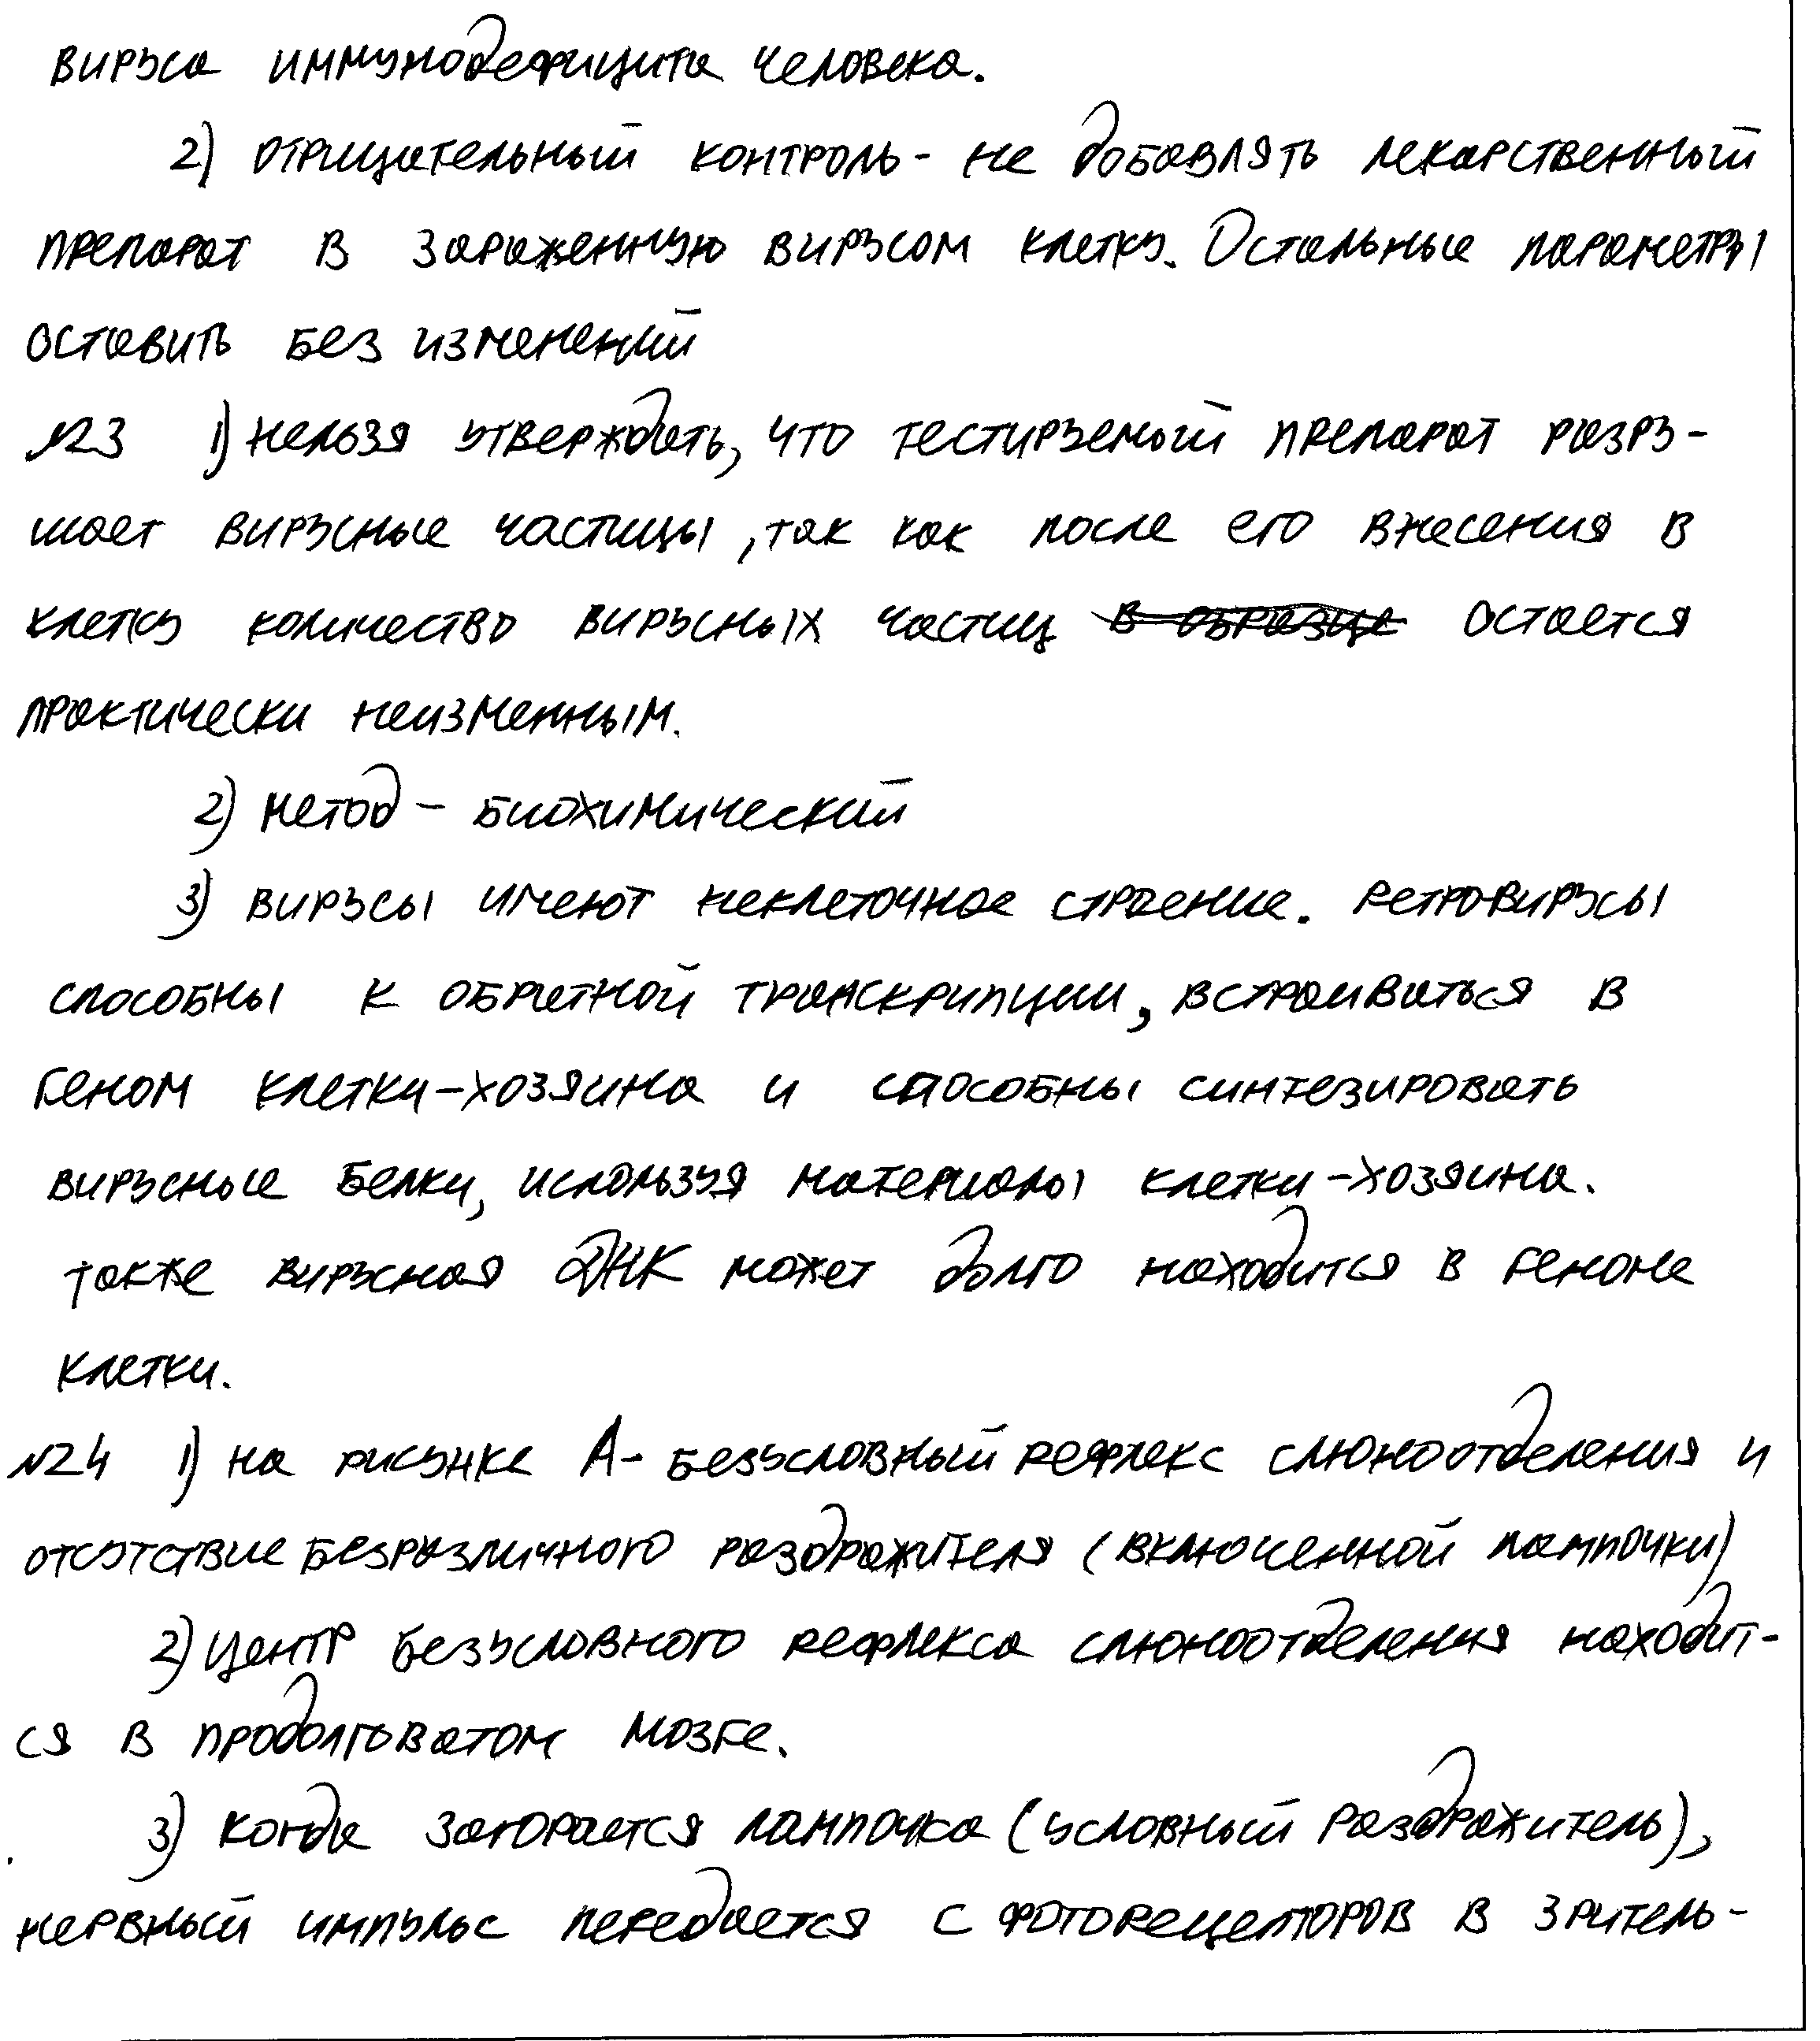 вируса иммунодефицита человека.
2) отрицательный контроль - не добавлять лекарственный
препарат в зараженную вирусом клетку. Остальные параметры
оставить без изменений
№23 1) нельзя утверждать, что тестируемый препарат разру-
шает вирусные частицы, так как после его внесения в
клетку количество вирусных частиц в образце остается
практически неизменным.
2) метод - биохимический
3) вирусы имеют неклеточное строение. ретровирусы
способны к обратной транскрипции, встраиваться в
геном клетки-хозяина и способны синтезировать
вирусные белки, используя материалы клетки-хозяина.
также вирусная ДНК может долго находится в геноме
клетки.
№24 1) на рисунке А- безусловный рефлекс слюноотделения и
отсутствие безразличного раздражителя (включенной лампочки)
2) центр безусловного рефлекса слюноотделения находит-
ся в продолговатом мозге.
3) когда загорается лампочка (условный раздражитель),
нервный импульс передается с фоторецепторов в зритель-